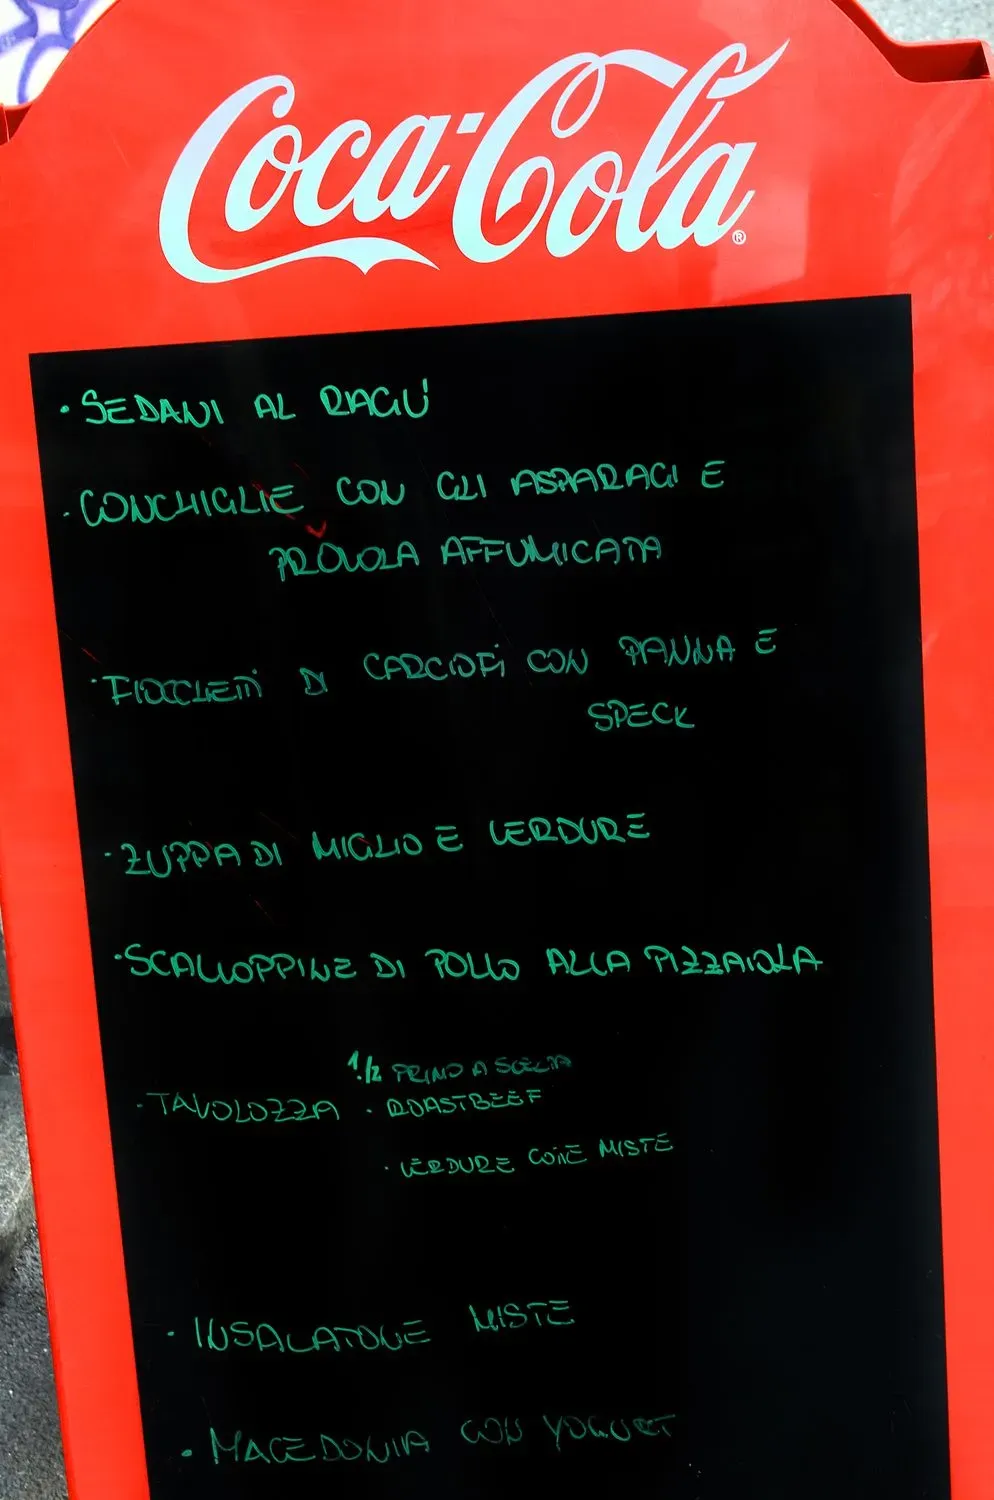 Coca-Cola®
· SEDANI AL RAGÙ
· CONCHIGLIE CON GLI ASPARAGI E
PROVOLA AFFUMICATA
· FIOCCHETTI DI CARCIOFI CON PANNA E
SPECK
· ZUPPA DI MIGLIO E VERDURE
· SCALLOPPINE DI POLLO ALLA PIZZAIOLA
1/2 PRIMO A SCELTA
· TAVOLOZZA · ROASTBEEF
· VERDURE COTTE MISTE
· INSALATONE MISTE
· MACEDONIA CON YOGURT